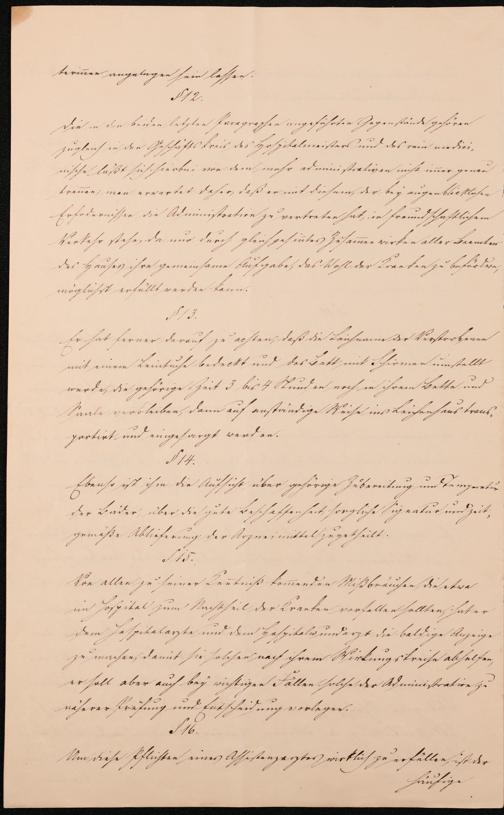 termine angelegen sein lassen.
§ 12.
Die in den beiden letzten Paragraphen angeführten Gegenstände gehören
zugleich in den Geschäftskreis des Hospitalmeisters und das rein medici-
nische läßt sich hierbei von dem mehr administrativen nicht immer genau
trennen; man erwartet daher, daß er mit diesem, der bey augenblicklichen
Erfordernissen die Administration zu vertreten hat, in freundschaftlichem
Verkehr stehe, da nur durch gleichgesinntes Zusammenwirken aller Beamten
des Hauses ihre gemeinsame Aufgabe, das Wohl der Kranken zu befördern,
möglichst erfüllt werden kann.
§ 13.
Er hat ferner darauf zu achten, daß die Leichname der Verstorbenen
mit einem Leintuche bedeckt und das Bett mit Schirmen umstellt
werde, die gehörige Zeit 3 bis 4 Stunden noch in ihrem Bette und
Saale verbleiben, dann auf anständige Weise ins Leichenhaus trans-
portirt und eingesargt werden.
§ 14.
Ebenso ist ihm die Aufsicht über gehörige Zubereitung und Temperatur
der Bäder, über die gute Beschaffenheit, sorgliche Signatur und zeit-
gemäße Ablieferung der Arzneimittel zugetheilt.
§ 15.
Von allen zu seiner Kentniß kommenden Mißbräuchen, die etwa
im Hospital zum Nachtheil der Kranken vorfallen sollten, hat er
dem Hospitalarzte und dem Hospitalwundarzt die baldige Anzeige
zu machen, damit sie solchen nach ihrem Wirkungskreise abhelfen,
er soll aber auch bey wichtigen Fällen solche der Administration zu
näherer Prüfung und Entscheidung vorlegen.
§ 16.
Um diese Pflichten eines Assistenzarztes wirklich zu erfüllen, ist der
häufige